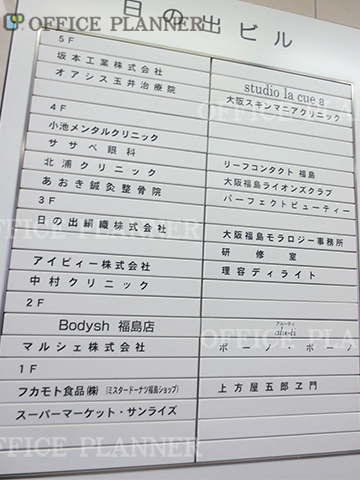 OFFICE PLANNER
日の出ビル
5F
坂本工業株式会社
オアシス玉井治療院
studio la cue a
大阪スキンマニアクリニック
4F
小池メンタルクリニック
ササベ眼科
北浦クリニック
あおき鍼灸整骨院
リーフコンタクト 福島
大阪福島ライオンズクラブ
パーフェクトビューティー
3F
日の出絹織株式会社
アイビィー株式会社
中村クリニック
大阪福島モラロジー事務所
研修室
理容ディライト
2F
Bodysh 福島店
マルシェ株式会社
ボーノ・ボーノ
1F
フカモト食品㈱ (ミスタードーナツ福島ショップ)
スーパーマーケット・サンライズ
上方屋五郎ヱ門
OFFICE PLANNER